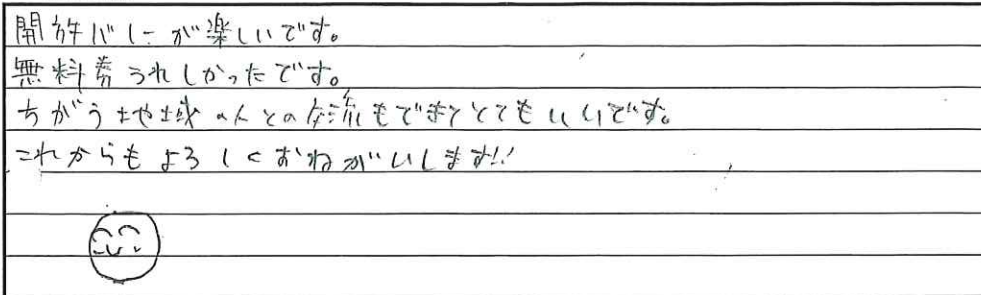 開放バレーが楽しいです。
無料券うれしかったです。
ちがう地域の人との交流もできてとてもいいです。
これからもよろしくおねがいします!!